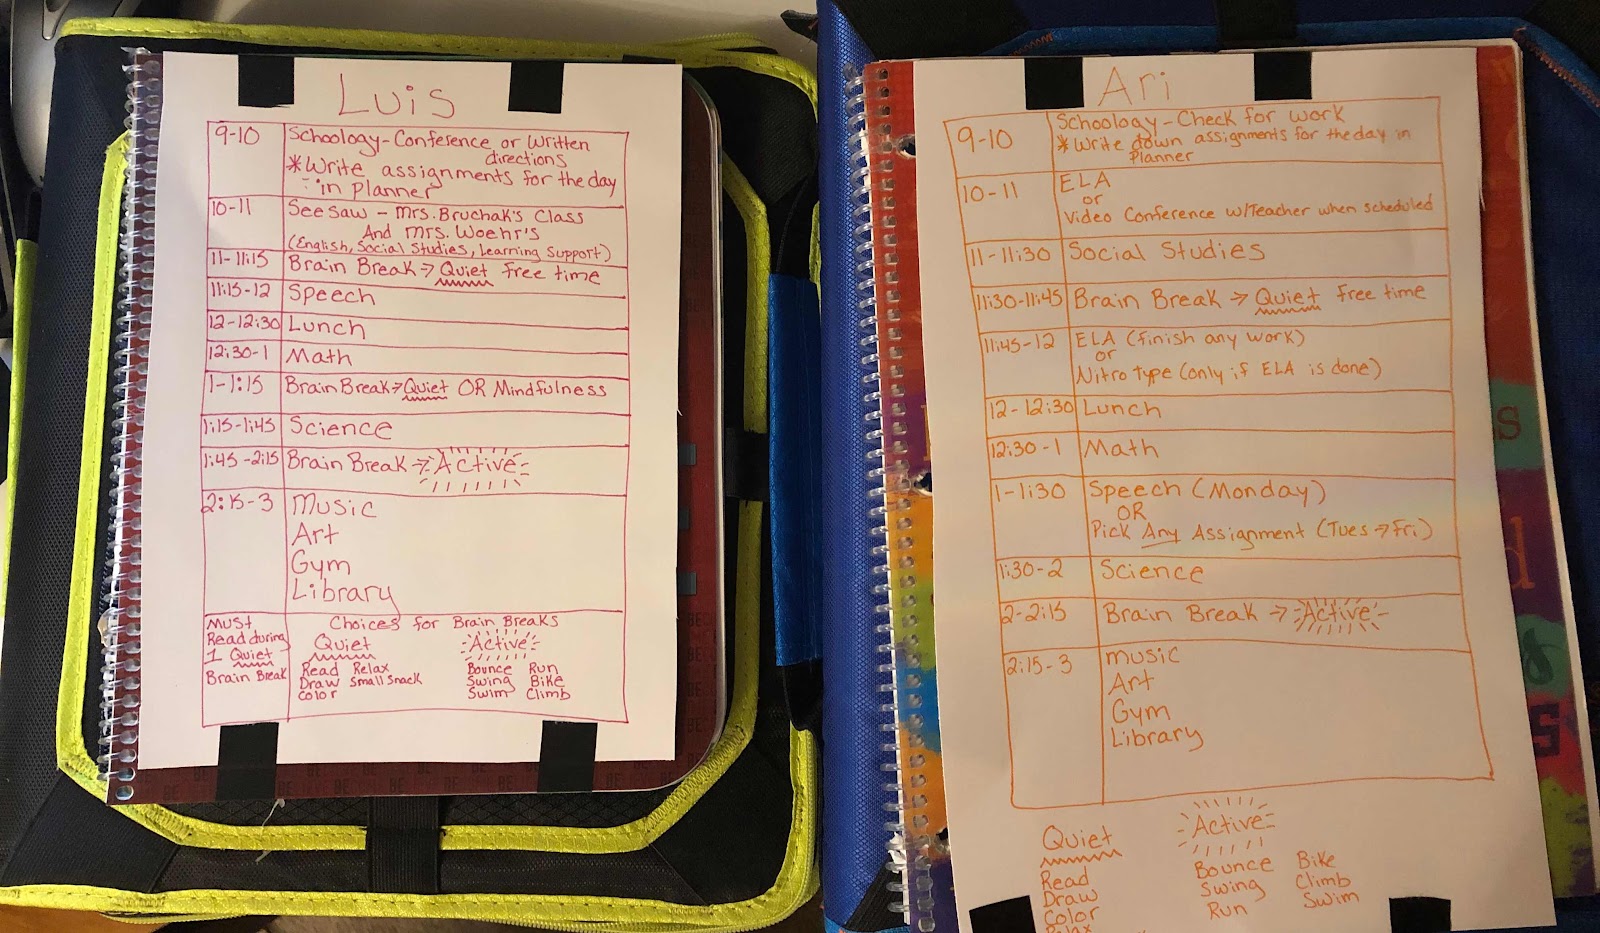 Luis
9-10 Schoology-Conference or Written
directions
*Write assignments for the day
in planner
10-11 Seesaw - Mrs. Bruchak's Class
And Mrs. Woehr's
(English, Social Studies, Learning Support)
11-11:15 Brain Break → Quiet free time
11:15-12 Speech
12-12:30 Lunch
12:30-1 Math
1-1:15 Brain Break → Quiet OR Mindfulness
1:15-1:45 Science
1:45-2:15 Brain Break → Active
2:15-3 Music
Art
Gym
Library
Must
Read during
1 Quiet
Brain Break
Choices for Brain Breaks
Quiet Active
Read Relax Bounce Run
Draw Small Snack Swing Bike
Color Swim Climb
Ari
9-10 Schoology-Check for work
*Write down assignments for the day in
Planner
10-11 ELA
or
Video Conference w/Teacher when scheduled
11-11:30 Social Studies
11:30-11:45 Brain Break → Quiet free time
11:45-12 ELA (finish any work)
or
Nitro type (only if ELA is done)
12-12:30 Lunch
12:30-1 Math
1-1:30 Speech (Monday)
OR
Pick Any Assignment (Tues → Fri)
1:30-2 Science
2-2:15 Brain Break → Active
2:15-3 Music
Art
Gym
Library
Quiet Active
Read Bounce Bike
Draw Swing Climb
Color Run Swim
Relax